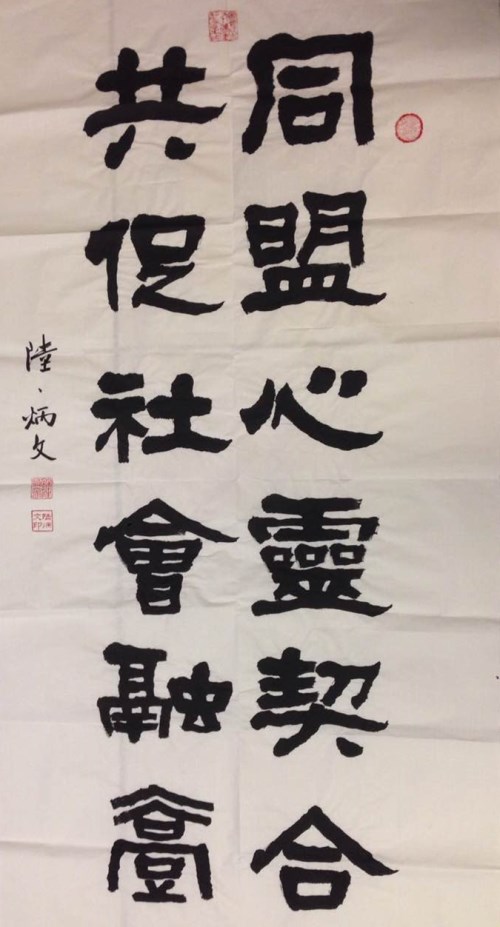 同盟心靈契合
共促社會融
陸、炳文